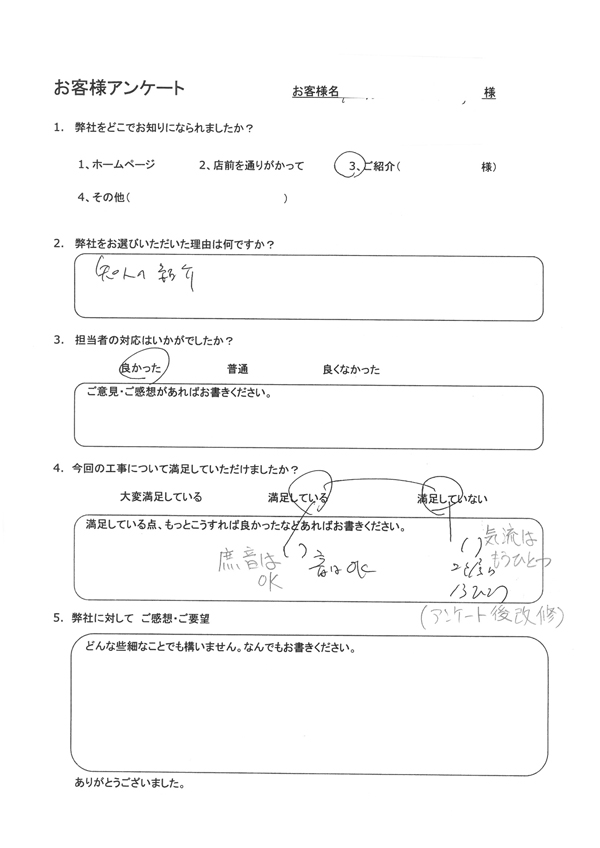 お客様アンケート
お客様名 様
1. 弊社をどこでお知りになられましたか?
1、ホームページ 2、店前を通りがかって 3、ご紹介( 様)
4、その他( )
2. 弊社をお選びいただいた理由は何ですか?
知人の紹介
3. 担当者の対応はいかがでしたか?
良かった 普通 良くなかった
ご意見・ご感想があればお書きください。
4. 今回の工事について満足していただけましたか?
大変満足している 満足している 満足していない
満足している点、もっとこうすれば良かったなどあればお書きください。
気流は
もうひとつ
音は
OK
音はOK
(アンケート後改修)
5. 弊社に対して ご感想・ご要望
どんな些細なことでも構いません。なんでもお書きください。
ありがとうございました。